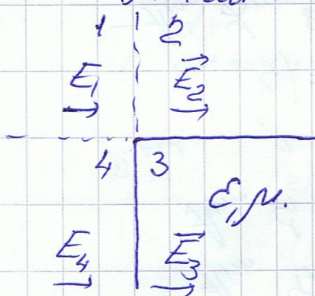 1 2
E₁ E₂
4 3
ε, μ.
E₄ E₃